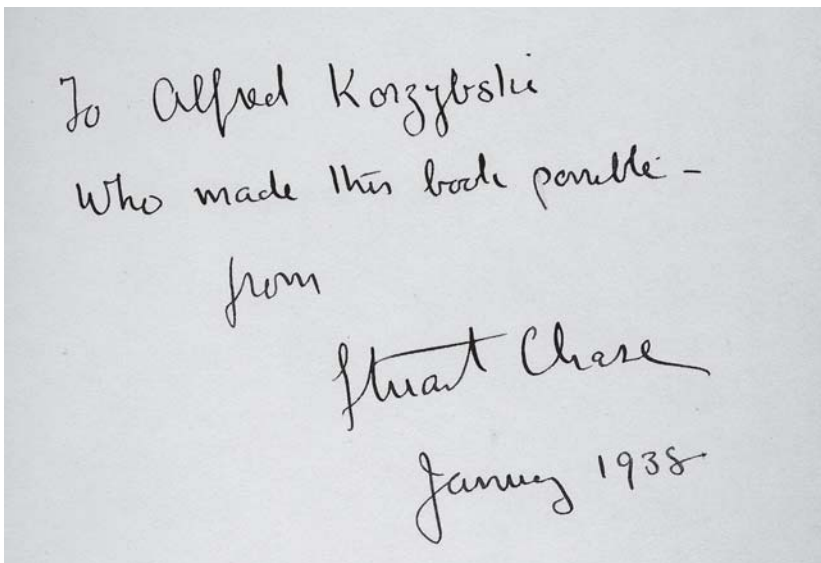 To Alfred Korzybski
Who made this book possible –
from
Stuart Chase
January 1938